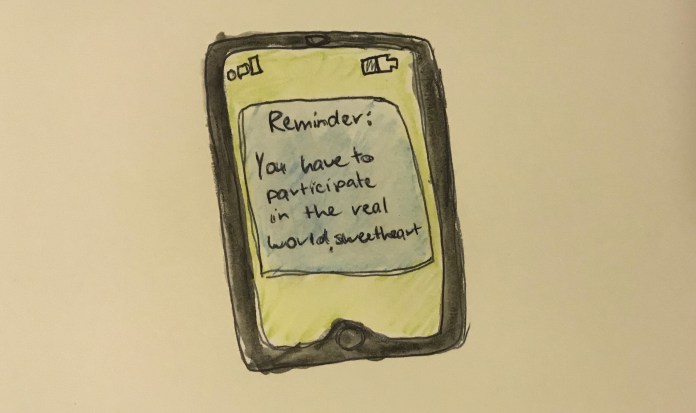 Reminder:
You have to
participate
in the real
world, sweetheart